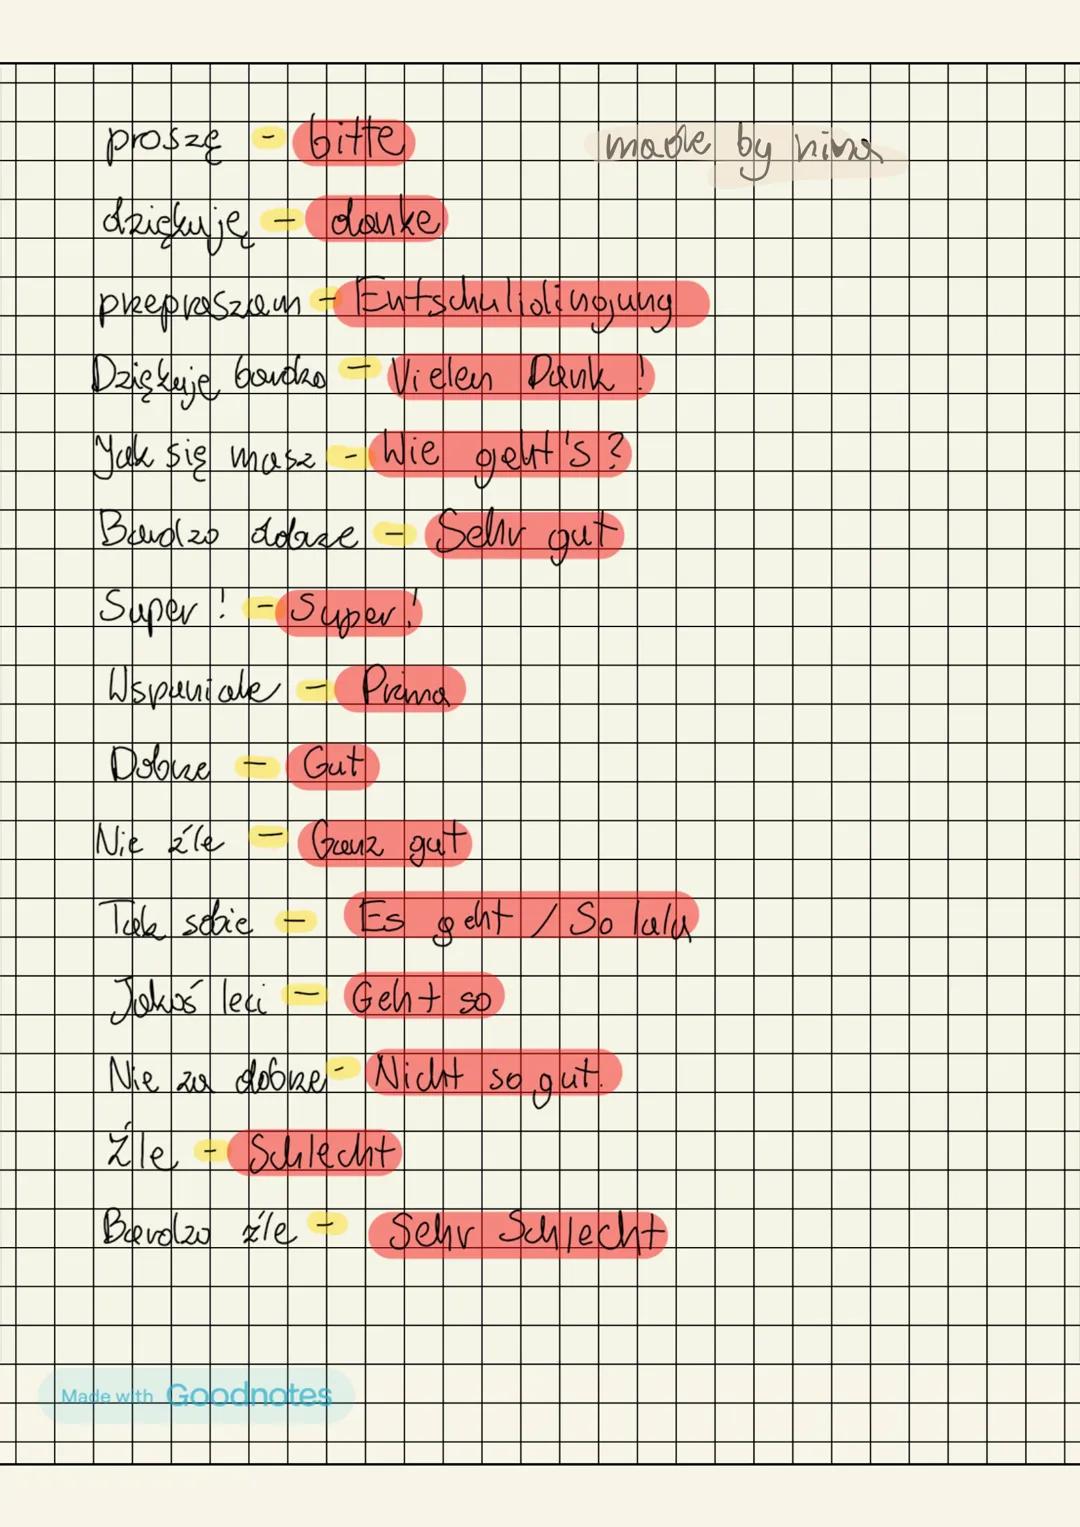 proszę - bitte
made by nina
dziękuję - danke
przepraszam - Entschulidingung
Dziękuję bardzo - Vielen Dank !
Jak się masz - Wie geht's ?
Bardzo dobrze - Sehr gut
Super ! - Super !
Wspaniale - Prima
Dobrze - Gut
Nie źle - Ganz gut
Tak sobie - Es geht / So lala
Jakoś leci - Geht so
Nie za dobrze - Nicht so gut.
Źle - Schlecht
Bardzo źle - Sehr Schlecht
Made with Goodnotes